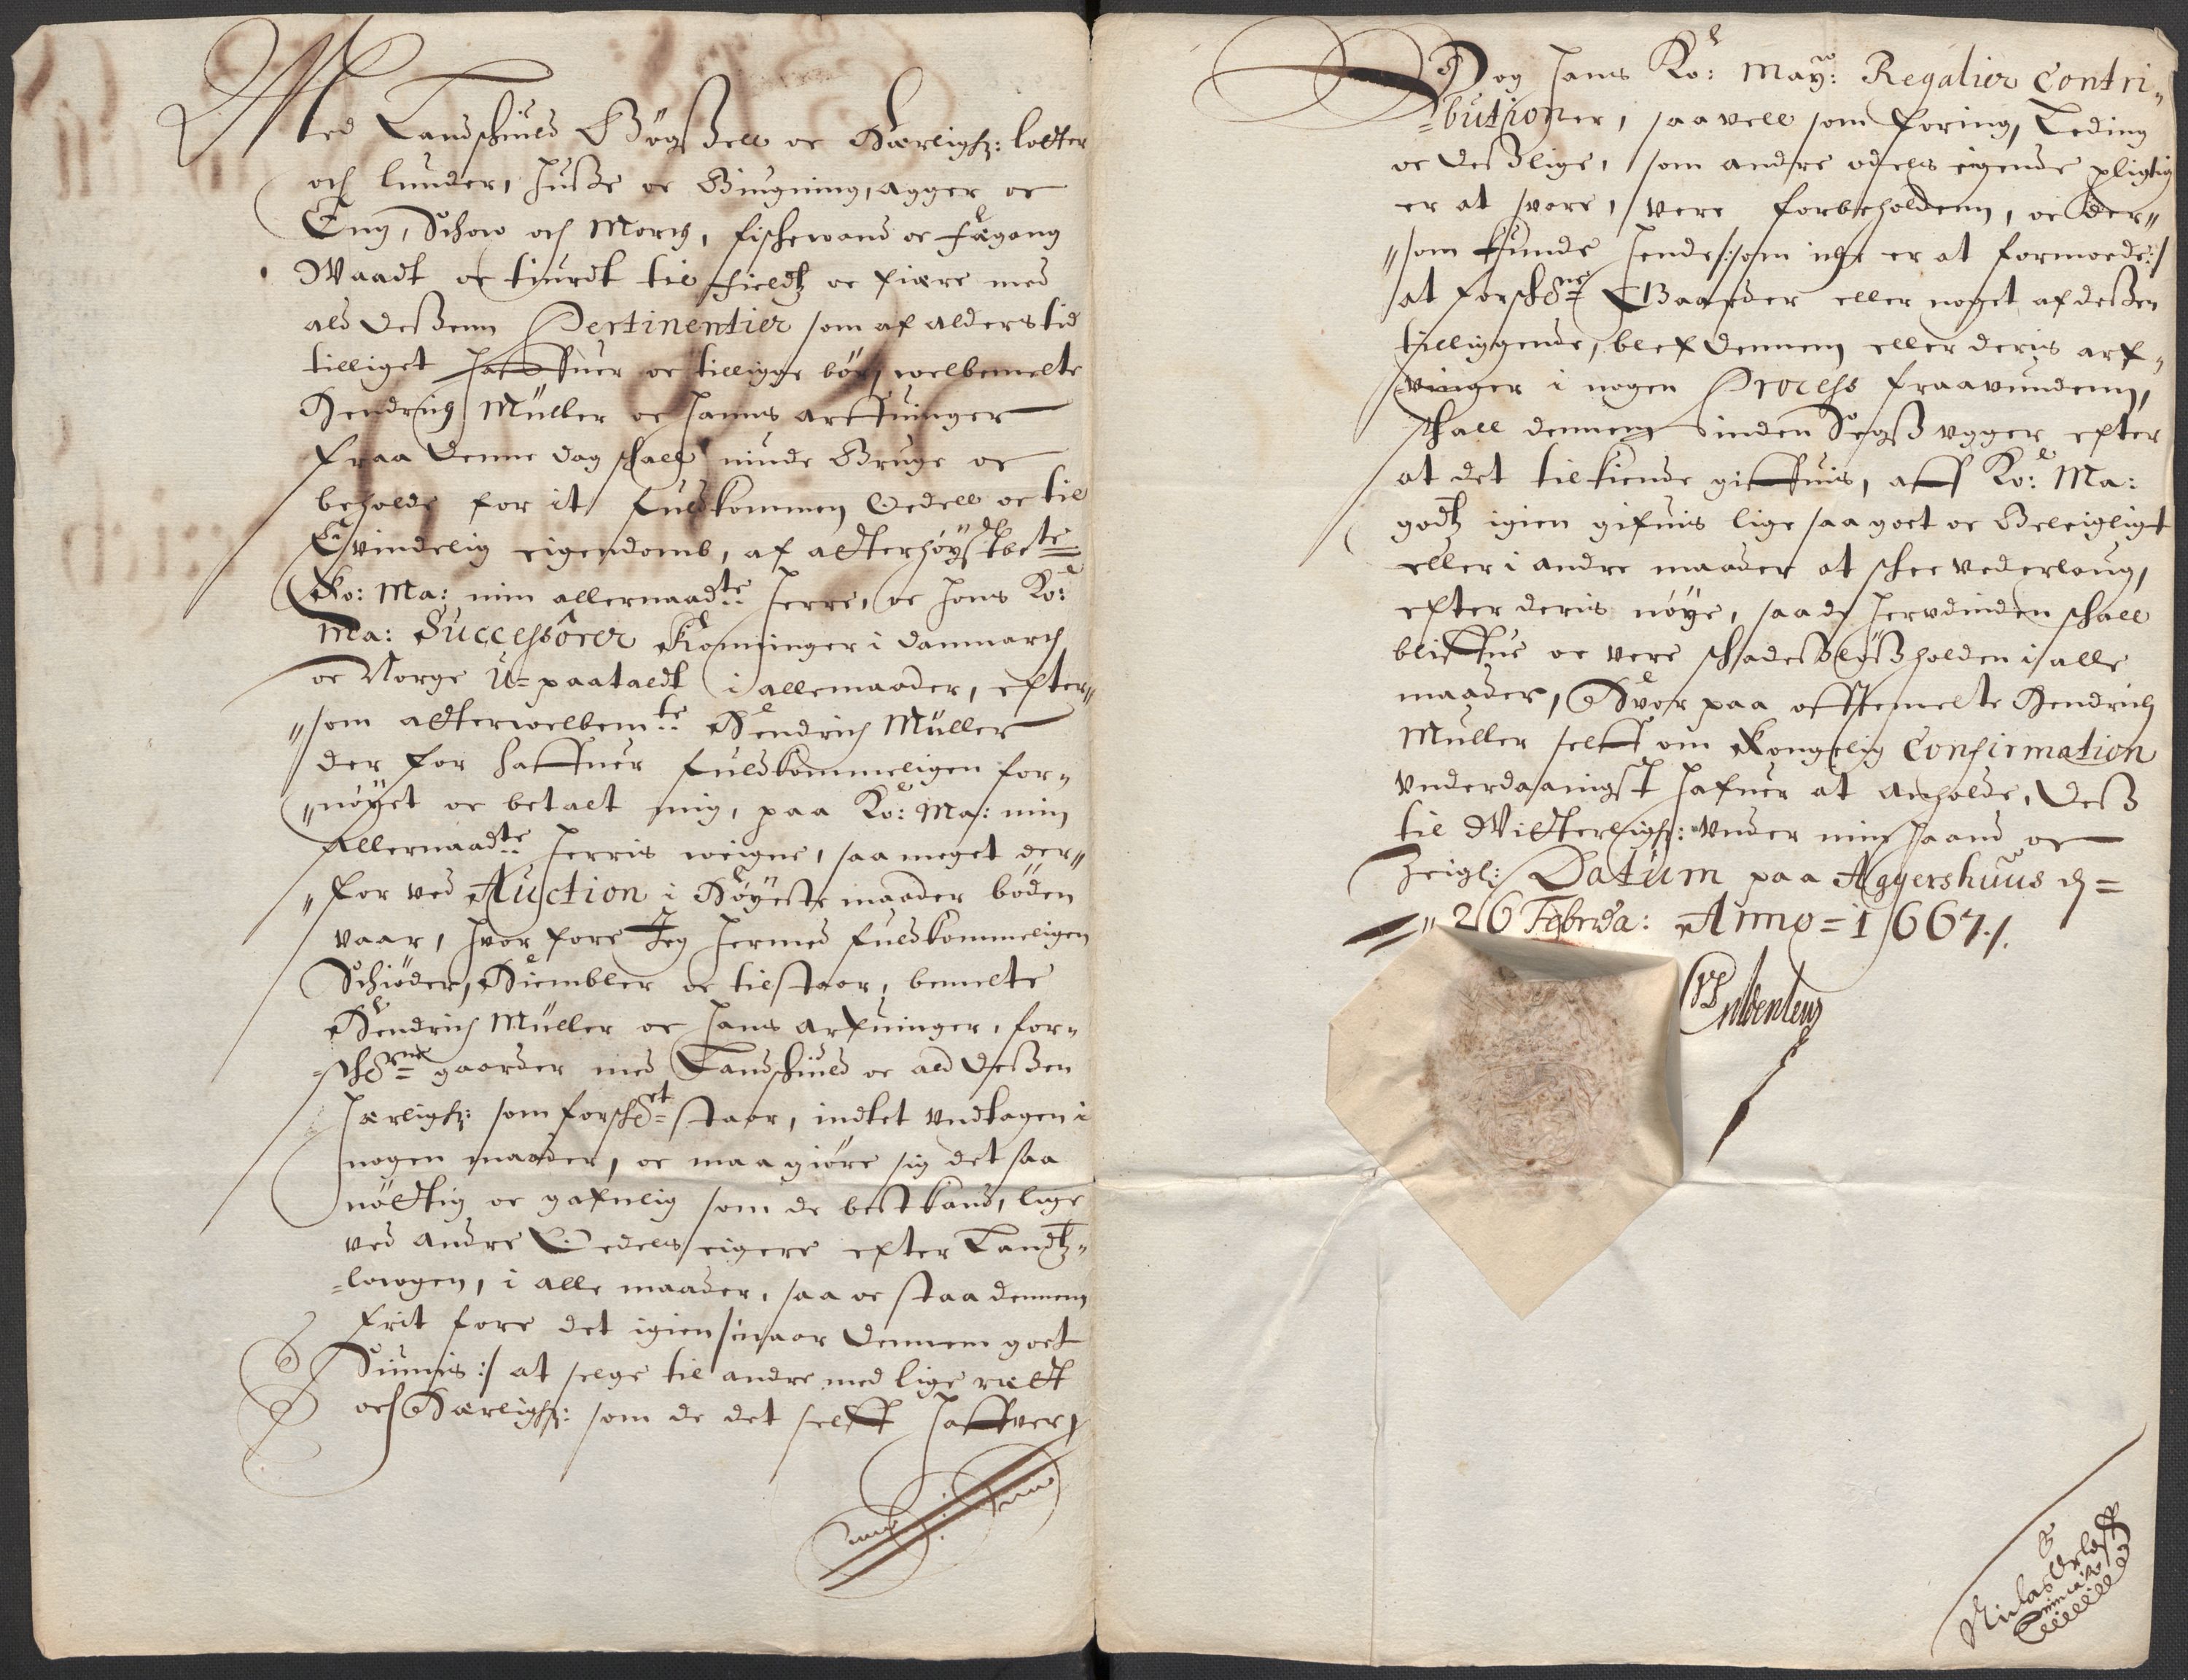 Med Landschuld Bøgßell oc Herligh: lotter
och lunder, Huße oc Biugning, agger oc
Eng, Schow och March, fischewand oc fægang
Waadt oc tiurdt til Fieldz oc fiære med
ald deßenn Pertinentier som af alders tid
tilliget haffuer oc tilligge bør, welbemelte
Hendrich Müller oc hanns arffuinger
fraa denne dag schall niude Bruge oc
beholde for it fuldkommen Oedell oc til
Evindelig eigendomb, af alterhøystbete
Ko: Ma: min allernaadte Herre, oc hans Ko:
Ma: Successòrer Konninger i Danmarch
oc Norge U=paataldt i allemaader, efter„
„som alterwelbemte Hendrich Müller
der for haffuer fuldkommeligen for„
„nøyet oc betalt mig, paa Ko: Ma: min
Allernaadte Herris weigne, saa meget der„
„for ved Auction i Høyeste maader böden
vaar, hvor fore Jeg hermed fuldkommeligen
Schiøder, Hiembler oc tilstaar, bemelte
Hendrich Müller oc hans arfuinger, for=
=schrne gaarder med Landschuld oc ald deßen
herligh: som forschet staar, indtet undtagen i
nogen maader, oc maa giøre sig det saa
nøttig oc gafnlig som de best kand, lige
ved andre Oedels eigere efter Landz„
=lowgen, i alle maader, saa oc staa dennem
frit fore det igien /:naar dennem goet
Siunis:/ at selge til andre med lige rætt
och Herligh: som de det selff haffver,
Dog hans Ko: May: Regalier Contri„
=butioner, saavell som foring, Leding
oc deßlige, som andre odells eigende pligtig
er at svare, vere forbeholdenn, oc der„
„som kunde hende /:som iche er at formoede:/
at forschrne Gaarder eller noget af deßen
tilliggende, blef dennem eller deris arf„
vinger i nogen Process fraavundenn,
schall dennem inden Segß ugger efter
at det tilkiende giffuis, aff Ko: Ma:
godz igien gifuis lige saa goet oc Beleigligt
eller i andre maader at schee vederlaug,
efter deris nøye, saa de herudinden schall
bliffue oc vere schadesløßholden i alle
maader, Hvor paa offtemelte Hendrich
Müller selff om Kongelig Confirmation
underdaanigst hafuer at anholde, Deß
til Witterligh: under min haand oc
Zeigl: Datum paa Aggershuus d=
„ 26 Febrva: Anno = 1667 ./.